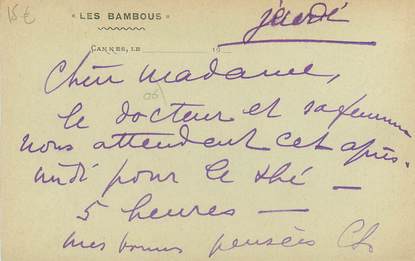 15 €
« LES BAMBOUS »
jeudi
CANNES, LE 19
Chère Madame,
le docteur et sa femme
nous attendent cet après-
midi pour le thé —
5 heures —
mes bonnes pensées